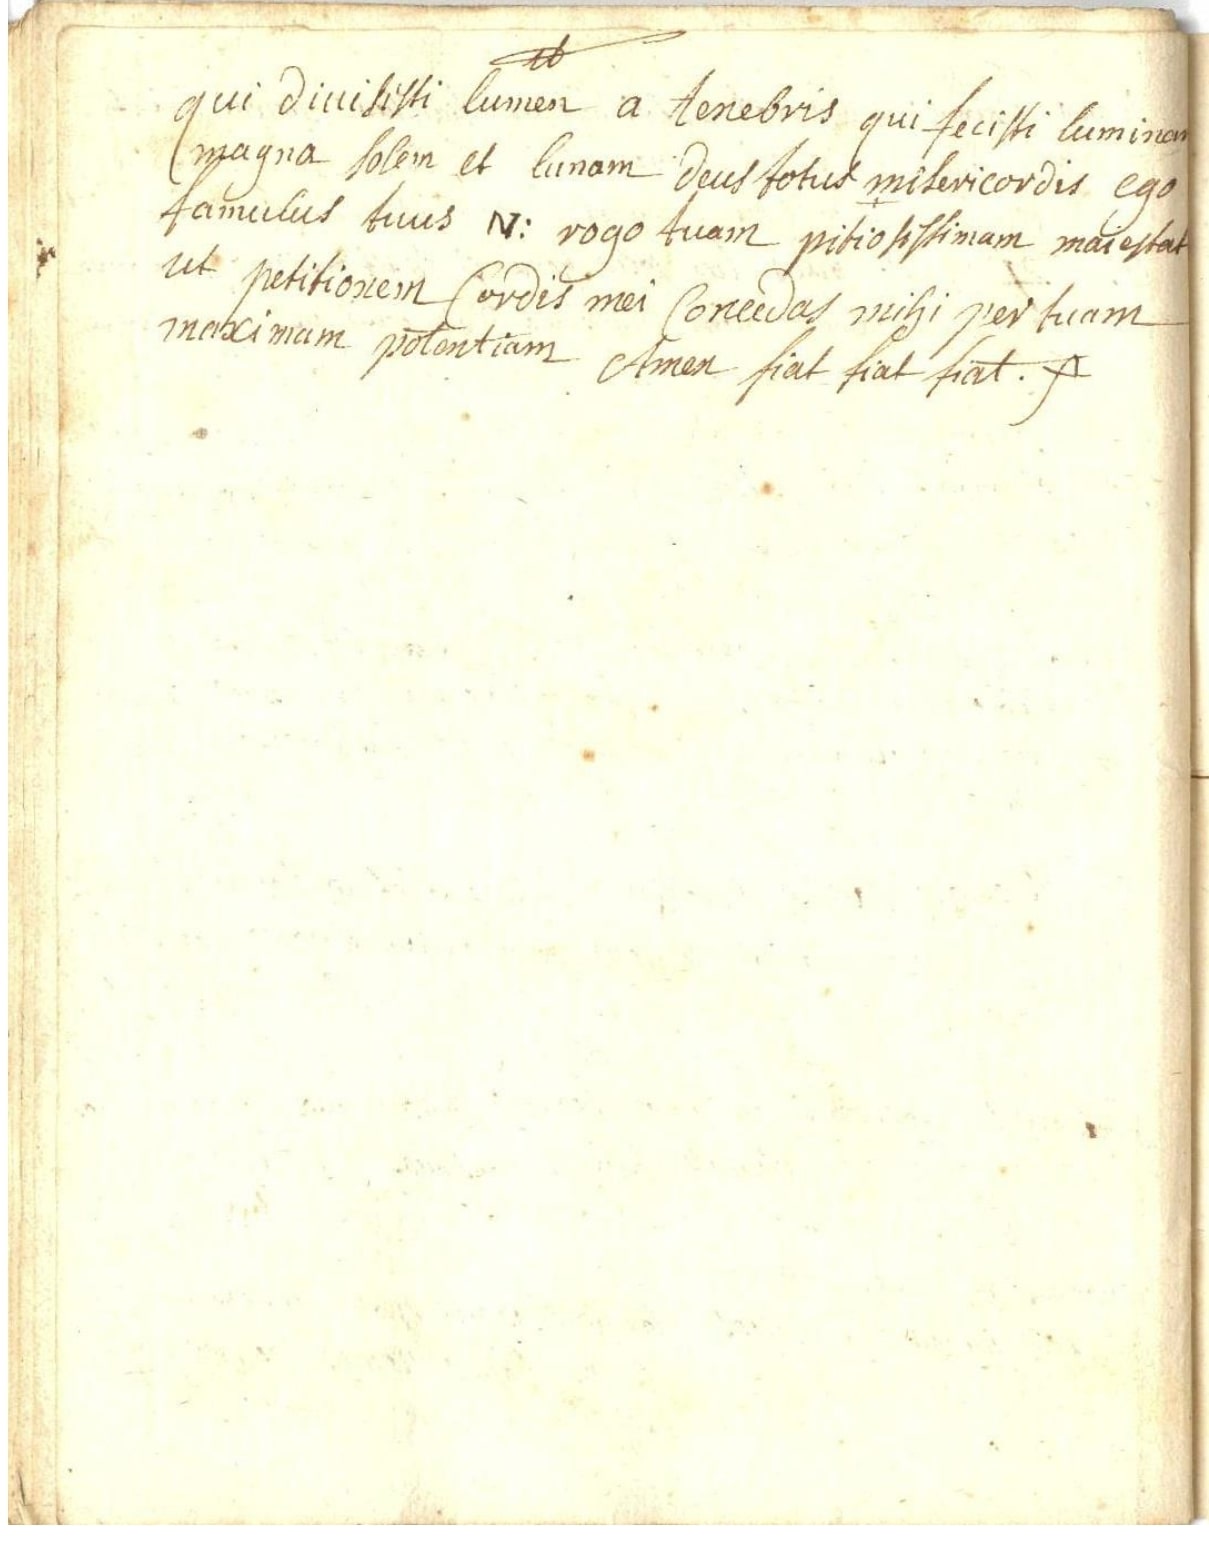 16
qui diuisisti lumen a tenebris qui fecisti luminar
magna solem et lunam deus totus misericordis ego
famulus tuus N: rogo tuam pitiosissimam maiestat
ut petitionem Cordis mei Concedas mihi per tuam
maximam potentiam Amen fiat fiat fiat.